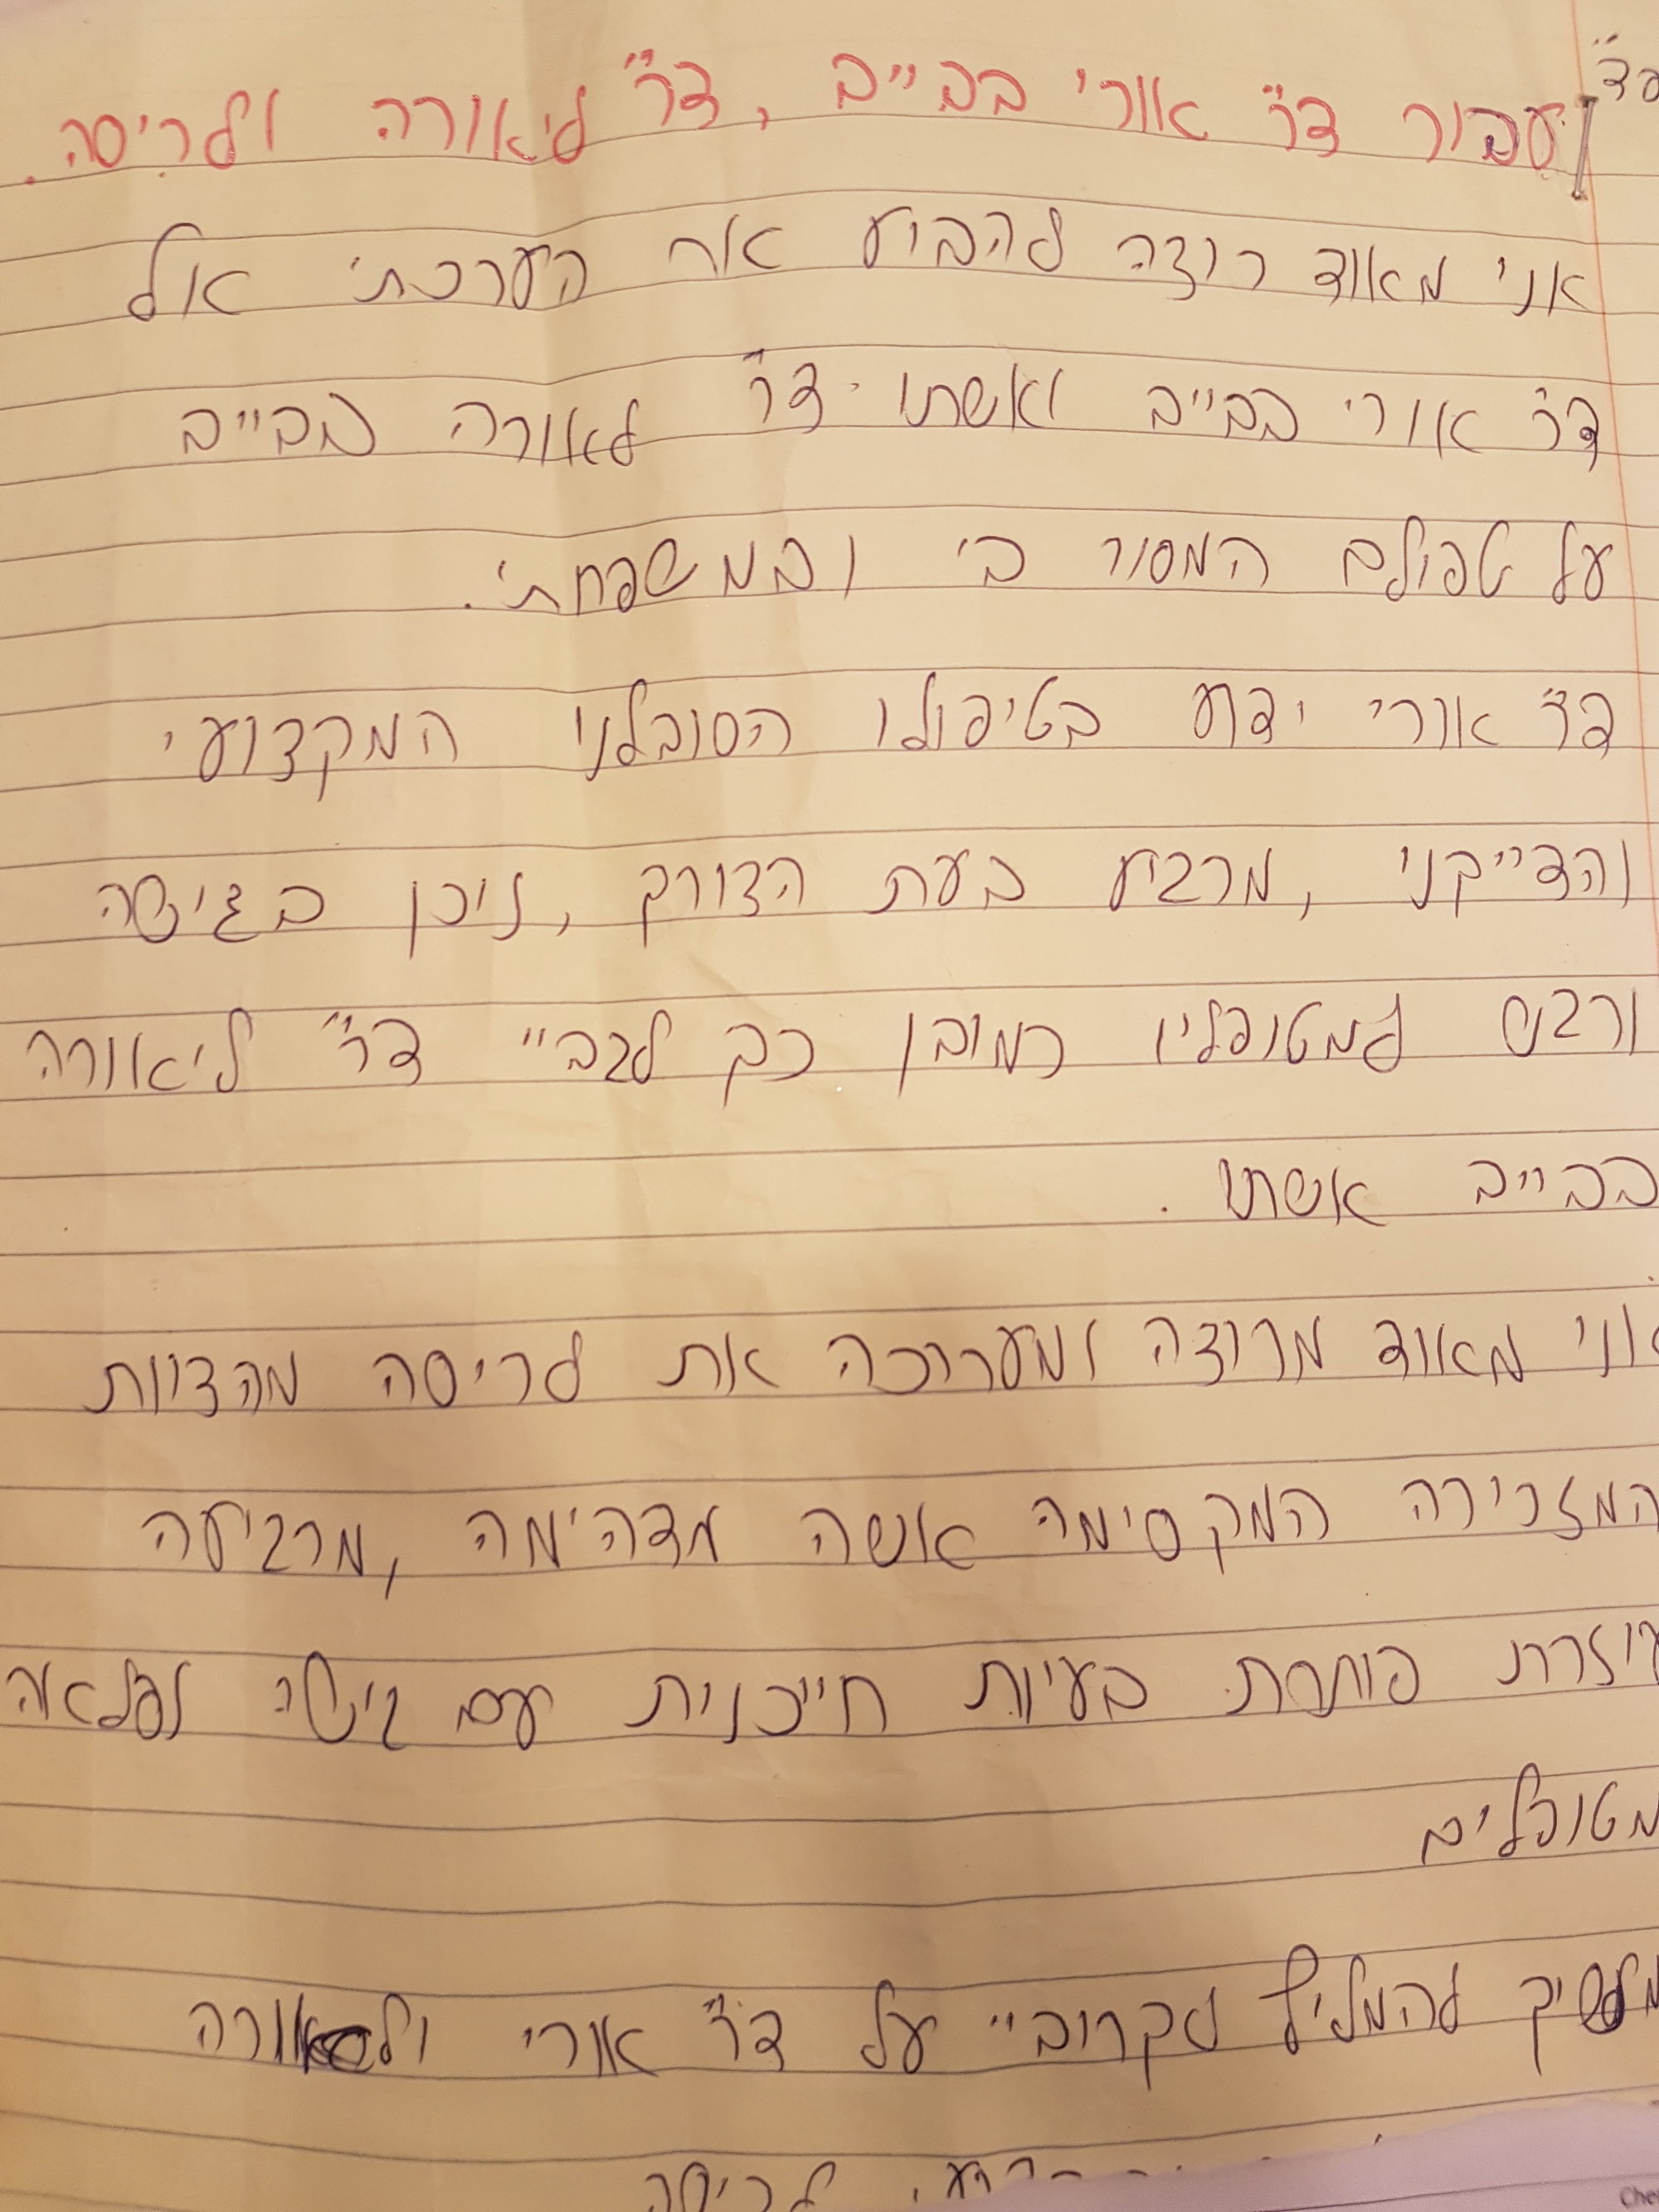 עבור דר״ אורי בבייב, דר״ ליאורה ולריסה.
אני מאוד רוצה להביע את הערכתי אל
דר״ אורי בבייב ואשתו דר״ לאורה בבייב
על טפולם המסור בי ובמשפחתי.
דר״ אורי ידוע בטיפולו הסובלני המקצועי
והדייקני, מרגיע בעת הצורך, ניכן בגישה
ורגש למטופליו כמובן כך לגבי דר״ ליאורה
בבייב אשתו.
אני מאוד מרוצה ומעריכה את לריסה מהצוות
המזכירה המקסימה אשה מדהימה, מרגיעה
עוזרת פותרת בעיות חייכנית עם גישה נפלאה
מטופלים
להמליץ לקרוביי על דר״ אורי
לריסה